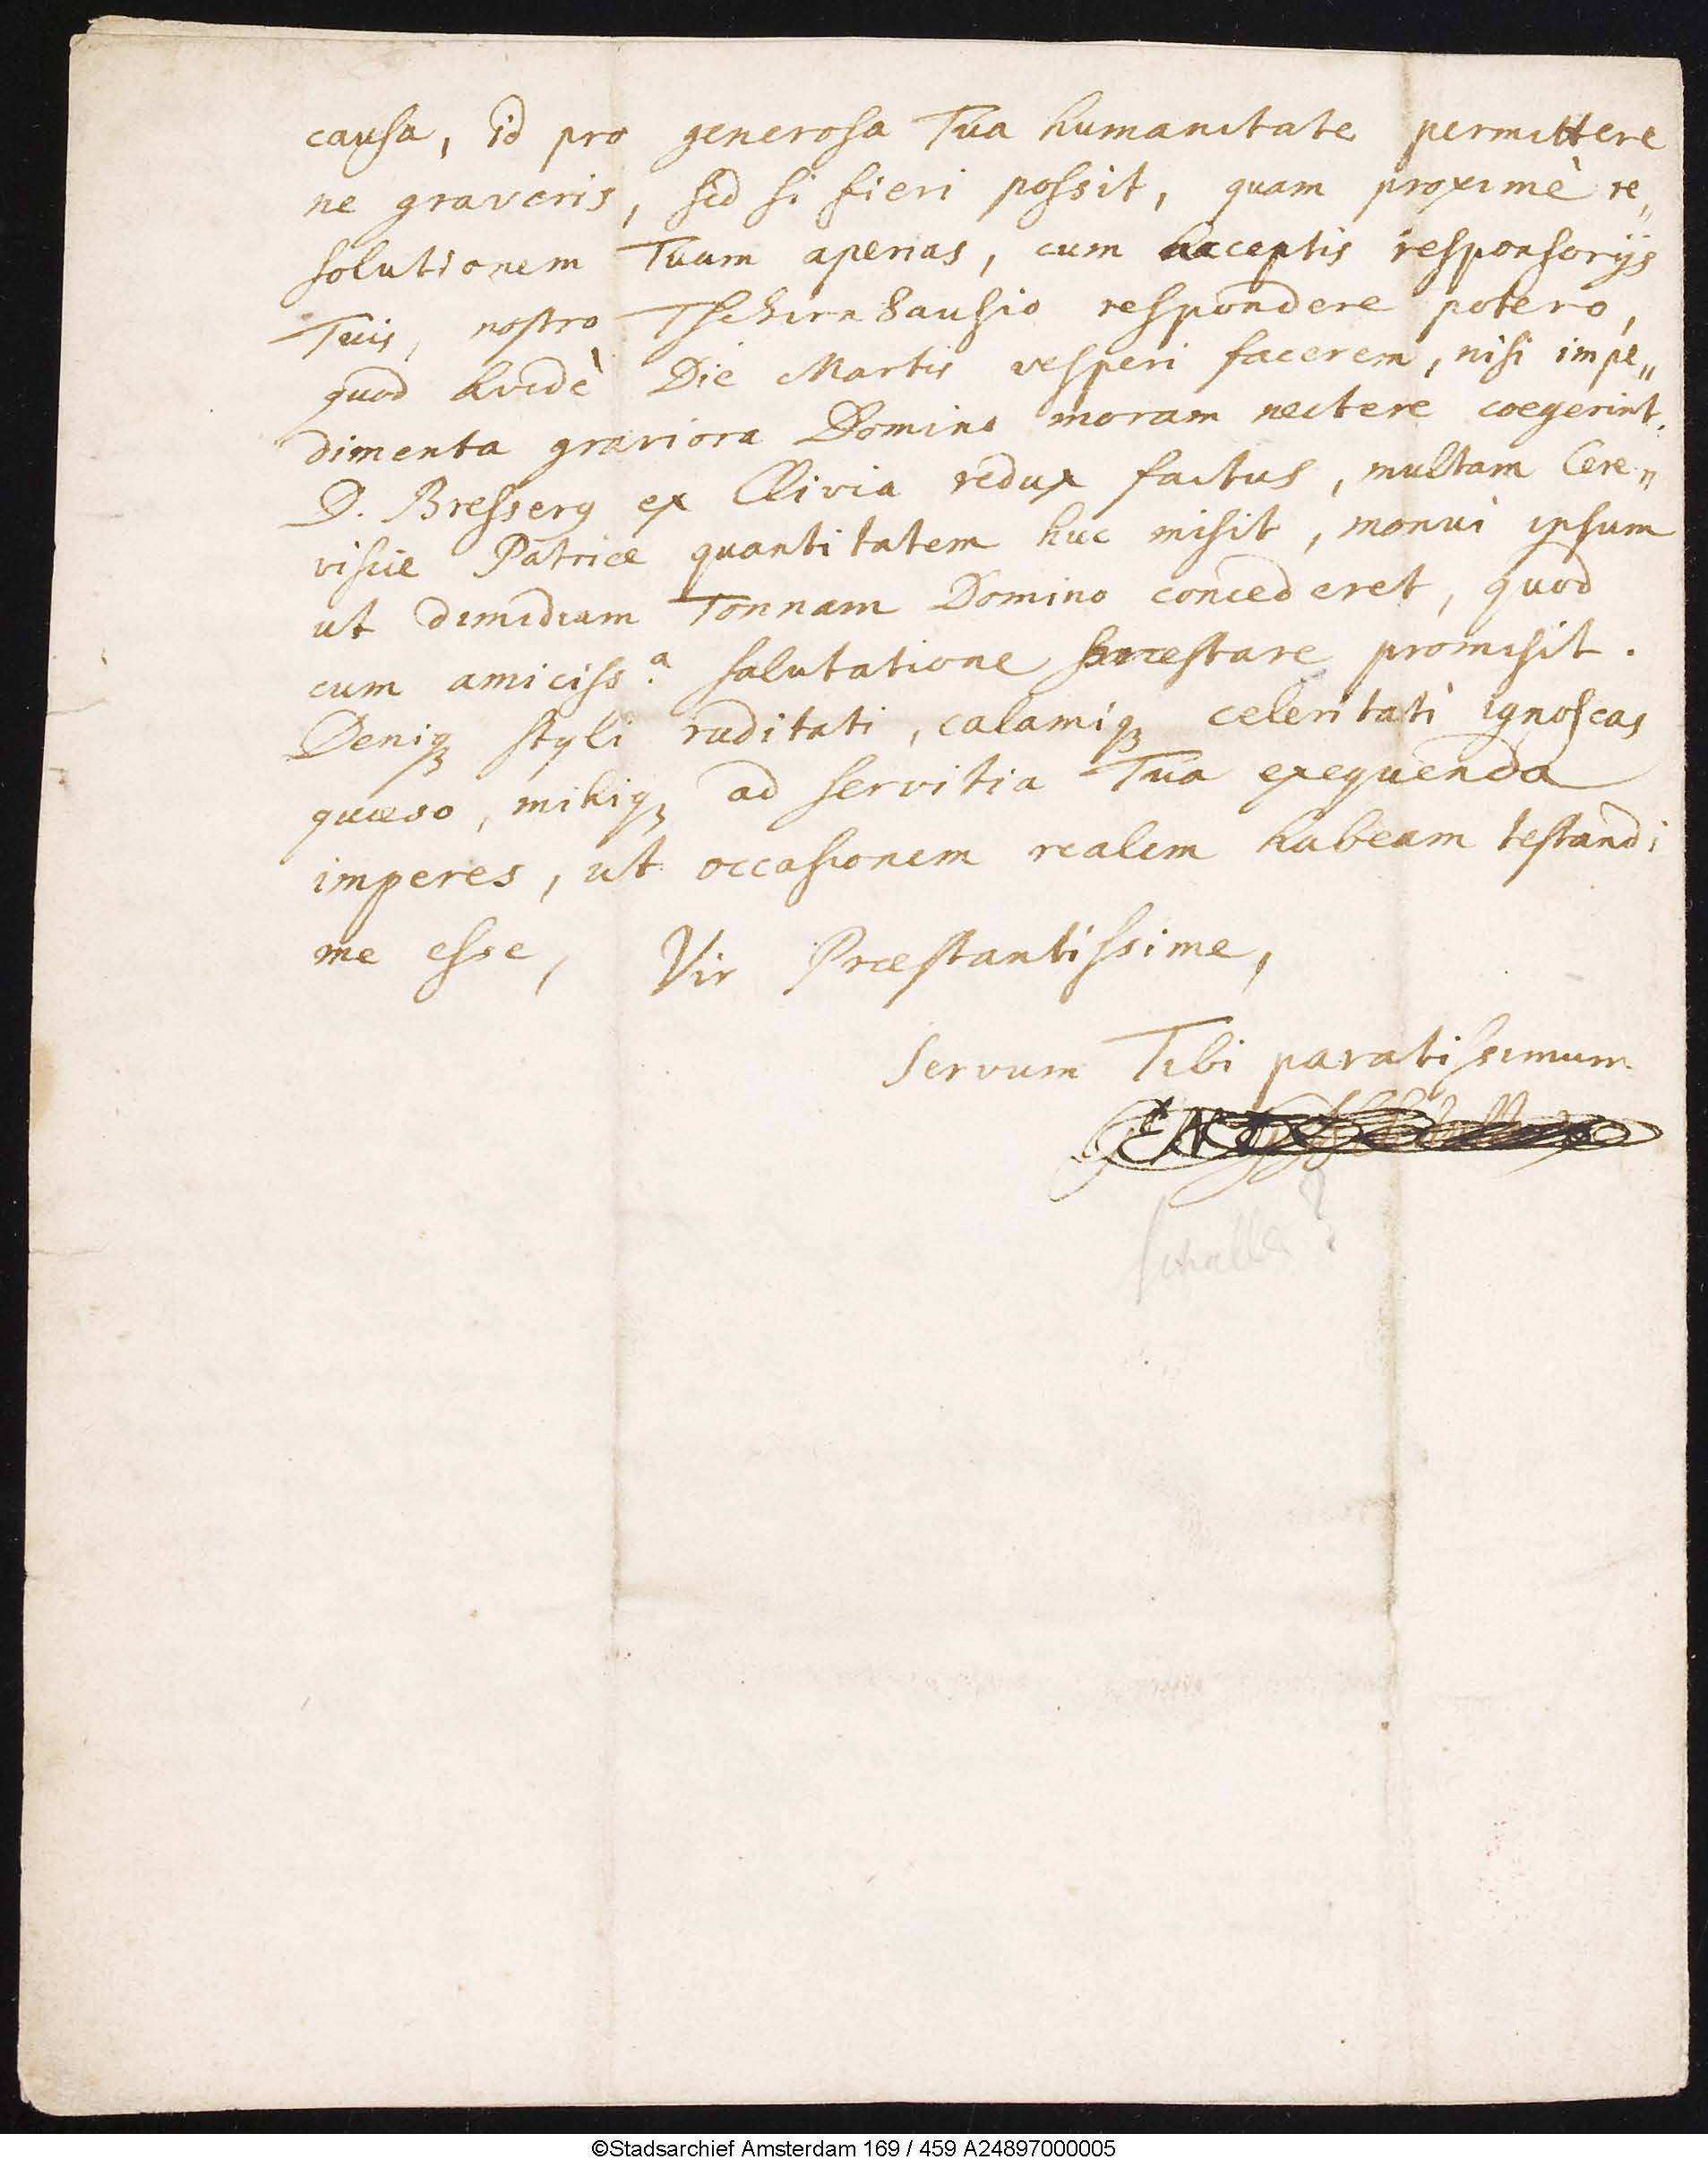 causa, id pro generosa Tua humanitate permittere
ne graveris, sed si fieri possit, quam proximè re„
solutionem Tuam aperias, cum acceptis responsorijs
Tuis, nostro Tschirnhausio respondere potero,
quod avidè Die Martis vesperi facerem, nisi impe„
dimenta graviora Domino moram nectere coegerint.
D. Bresserg ex Clivia redux factus, multam Cere„
visiæ Patriæ quantitatem huc misit, monui ipsum
ut dimidiam Tonnam Domino concederet, quod
cum amiciss.ª salutatione præstare promisit.
Deniqꝫ styli ruditati, calamiqꝫ celeritati ignoscas
quæso, mihiqꝫ ad servitia Tua exequenda
imperes, ut occasionem realem habeam testandi
me esse, Vir Præstantissime,
Servum Tibi paratissimum
Schaller?
©Stadsarchief Amsterdam 169 / 459 A24897000005